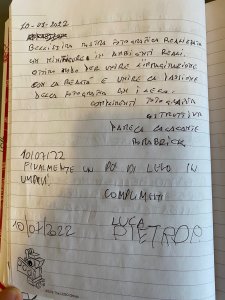 10-07-2022
BELLISSIMA MOSTRA FOTOGRAFICA REALIZZATA
CON MINIFIGURE IN AMBIENTI REALI.
OTTIMO MODO PER UNIRE L'IMMAGINAZIONE
CON LA REALTÀ E UNIRE LA PASSIONE
DELLA FOTOGRAFIA CON I LEGO.
COMPLIMENTI
10/07/22
FINALMENTE UN PO' DI LEGO IN
UMBRIA.
COMPLIMENTI
LUCA
10/07/2022 PIETRO